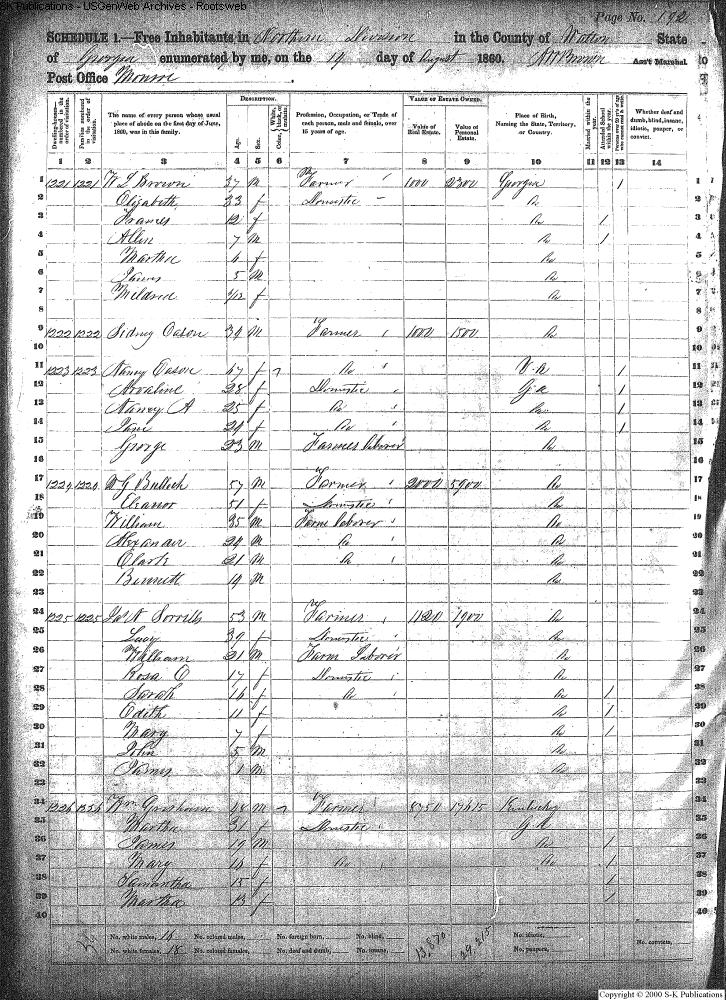 S-K Publications - USGenWeb Archives - Rootsweb
Page No. 192
SCHEDULE 1.—Free Inhabitants in Northern Division in the County of Walton State
of Georgia enumerated by me, on the 19 day of August 1860. Ass't Marshal
Post Office Monroe
Dwelling-houses—numbered in the order of visitation.
Families numbered in the order of visitation.
The name of every person whose usual place of abode on the first day of June, 1860, was in this family.
DESCRIPTION.
Age.
Sex.
Color, White, black, or mulatto.
Profession, Occupation, or Trade of each person, male and female, over 15 years of age.
VALUE OF ESTATE OWNED.
Value of Real Estate.
Value of Personal Estate.
Place of Birth, Naming the State, Territory, or Country.
Married within the year.
Attended School within the year.
Whether deaf and dumb, blind, insane, idiotic, pauper, or convict.
1 2 3 4 5 6 7 8 9 10 11 12 13 14
1 1221 1221 W L Brown 37 M Farmer 1000 2300 Georgia / 1
2 Elizabeth 33 f Domestic Do 2
3 Frances 12 f Do / 3
4 Allen 7 M Do / 4
5 Martha 6 f Do 5
6 James 5 M Do 6
7 Mildred /12 f Do 7
8 8
9 1222 1222 Sidney Cason 39 M Farmer 1000 1500 Do 9
10 10
11 1223 1223 Nancy Cason 67 f Do Va / 11
12 28 f Domestic Ga / 12
13 Nancy A 25 f Do Do / 13
14 Jane 24 f Do Do / 14
15 George 23 M Farmer Laborer Do 15
16 16
17 1224 1224 W G Bullock 57 M Farmer 2000 5900 Do 17
18 Eleanor 51 f Domestic Do 18
19 William 35 M Farm Laborer Do 19
20 Alexander 24 M Do Do 20
21 Clark 21 M Do Do 21
22 Bennett 19 M Do 22
23 23
24 1225 1225 Jas N Sorrells 53 M Farmer 1120 1900 Do 24
25 Lucy 39 f Domestic Do 25
26 William 21 M Farm Laborer Do 26
27 Rosa O 17 f Domestic Do 27
28 Sarah 16 f Do Do / 28
29 Edith 11 f Do / 29
30 Mary 7 f Do / 30
31 John 5 M Do 31
32 James 1 M Do 32
1226 Wm Gresham 48 M Farmer 8750 17615 Kentucky
Martha 31 f Domestic Ga
James 19 M Do /
Mary 16 f Do Do /
Samantha 15 f /
Martha 13 f /
40 40
No. white males, 16 No. colored males, No. foreign born, No. blind, 13,870 29,215 No. idiotic, No. convicts,
No. white females, 18 No. colored females, No. deaf and dumb, No. insane, No. paupers,
Copyright © 2000 S-K Publications